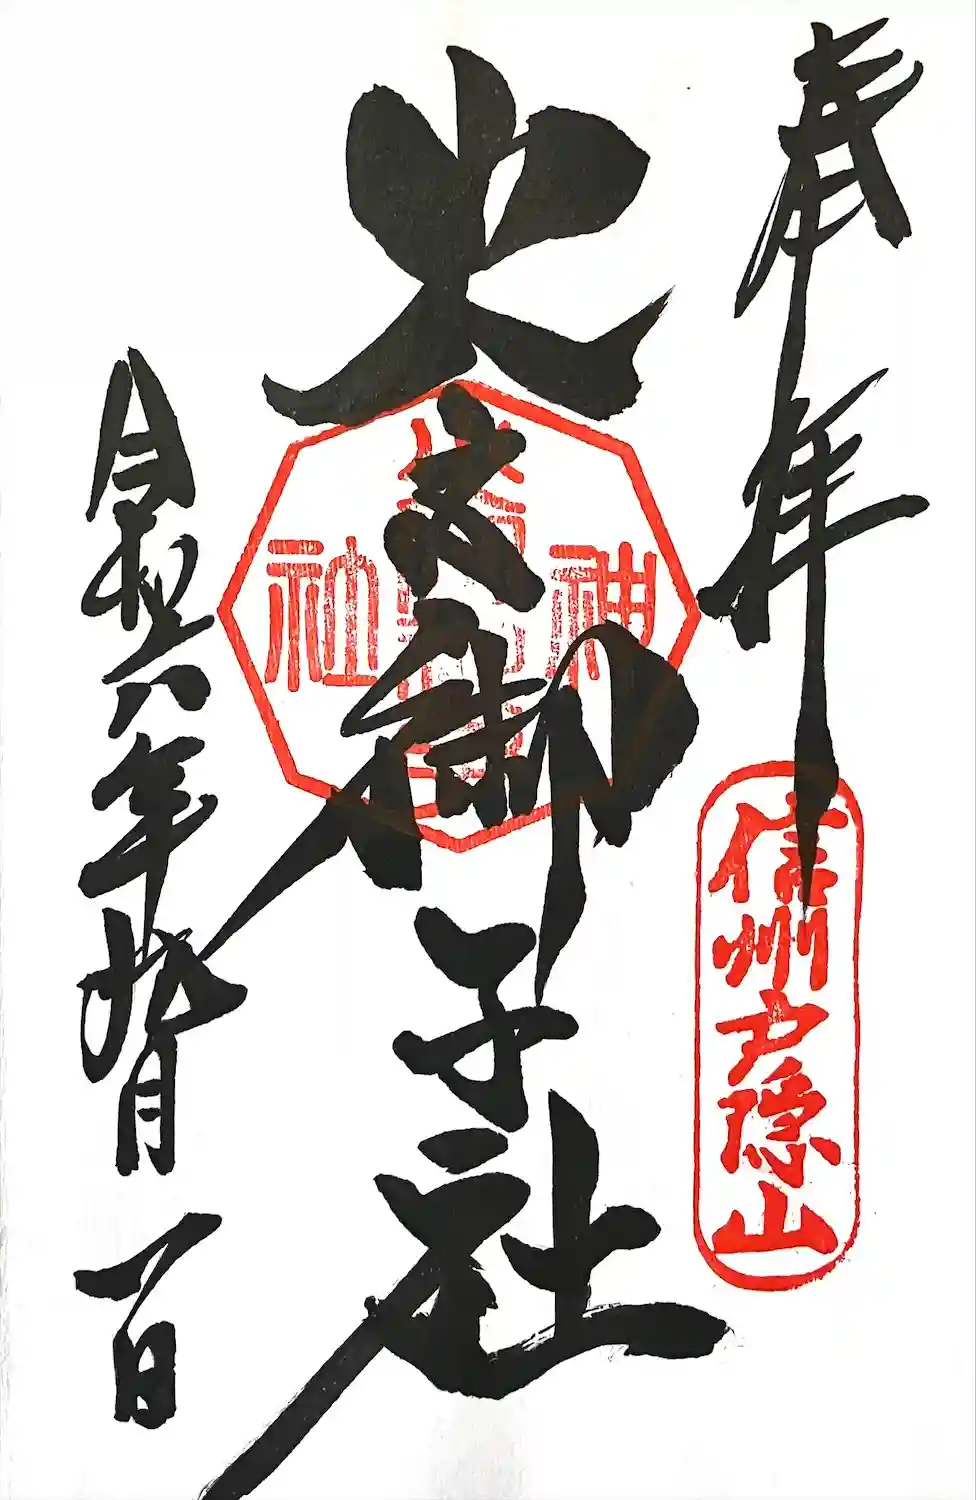 奉拝
信州戸隠山
火之御子社
神
社
令和六年
月
一日